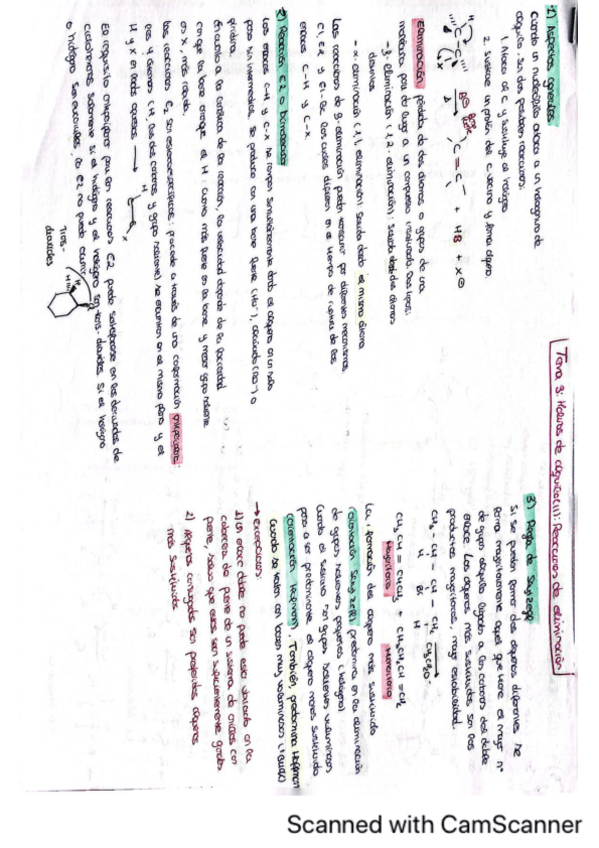 Tema 3: Haluros de alquilo(II): Reacciones de eliminación
1) Aspectos generales
Cuando un nucleófilo ataca a un halogenuro de
alquilo se dan dos posibles reacciones:
1. Ataca al C y sustituye al halógeno
2. Sustrae un protón del C vecino y forma alqueno
H
C - C
X
B⊖
Base
Δ
C = C + HB + X⊖
Eliminación: pérdida de dos átomos o grupos de una
molécula para dar lugar a un compuesto insaturado. Dos tipos:
- β eliminación (1,2-eliminación): salida desde dos átomos
distintos
- α-eliminación (1,1, eliminación): salida desde el mismo átomo
Las reacciones de β-eliminación pueden transcurrir por diferentes mecanismos,
E1, E2 y E1-BC los cuales difieren en el tiempo de ruptura de los
enlaces C-H y C-X
2) Reacción E2 o bimolecular
Los enlaces C-H y C-X se rompen simultáneamente dando el alqueno en un solo
paso sin intermedios. Se produce con una base fuerte (HO⁻), alcóxido (RO⁻) o
En cuanto a la cinética de la reacción, la velocidad depende de la
con que la base arranque el H: cuanto más fuerte es la base y mejor grupo saliente
es X, más rápida.
Las reacciones E2 son estereoespecíficas: procede a través de una conformación antiperiplanar:
(H, los dos carbonos y grupo saliente) se encuentran en el mismo plano y el
H y X en lados opuestos
H
X
El requisito antiperiplanar para las reacciones E2 puede satisfacerse en los derivados de
ciclohexano solamente si el hidrógeno y el halógeno son trans-diaxiales. Si el halógeno
o hidrógeno son ecuatoriales, la E2 no puede ocurrir
trans-
diaxiales
3) Regla de Saytzeff
Si se pueden formar dos alquenos diferentes se
forma mayoritariamente aquel que tiene el mayor nº
de grupos alquilo ligados a los carbonos del doble
enlace. Los alquenos más sustituidos son los
productos mayoritarios, mayor estabilidad.
CH₃ - CH - CH - CH₂
H Br H
CH₃CH₂O⁻
CH₃CH = CHCH₃ + CH₃CH₂CH = CH₂
Mayoritario Minoritario
La formación del alqueno más sustituido
(orientación Saytzeff) predomina en la eliminación
de grupos salientes pequeños (halógeno)
Cuando el sustrato son grupos salientes voluminosos
pasa a ser predominante el alqueno menos sustituido
(orientación Hofmann). También, predomina Hoffman
cuando se tratan con bases muy voluminosas
→ Excepciones:
1) Un enlace doble no puede estar ubicado en la
cabecera de puente de un sistema de anillos con
puente, salvo que estos sean suficientemente grandes
2) Alquenos conjugados son preferidos a alquenos
más sustituidos
Scanned with CamScanner